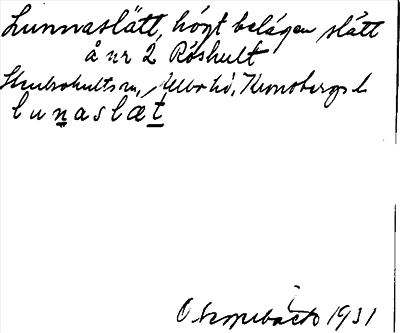 Lunnaslätt, högt belägen slått
å nr 2 Röshult
Stenbrohults sn, Allbo hd, Kronobergs l
lunaslæt
1931